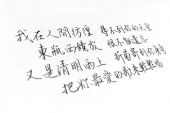 我在人間彷徨 尋不到你的天堂
東瓶西鏡放 恨不能遺忘
又是清明雨上 折菊寄到你身旁
把你最愛的歌來輕輕唱